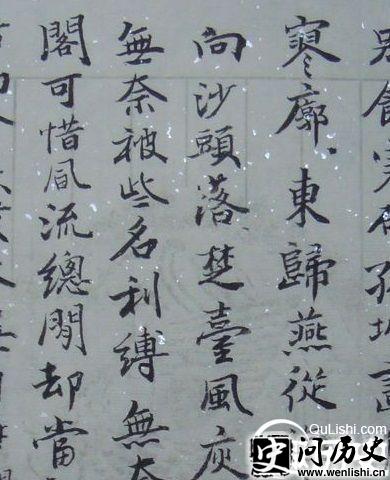 別館寒孤城畫
寥廓東歸燕從
向沙頭落楚臺風庾
無奈被些名利縛無奈
閣可惜風流總閒却當
QuLishi.com
问历史
www.wenlishi.com